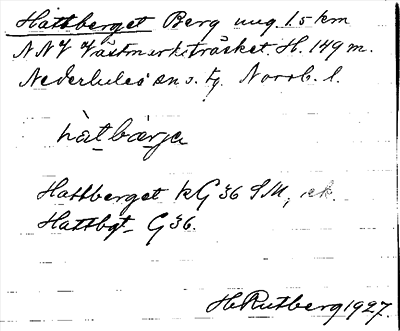 Hattberget Berg ung. 1.5 km
NNV Västmarksträsket. H. 149 m.
Nederluleå sn o. tg. Norrb. l.
hàtbærja
Hattberget kG 36 SM, ek.
Hattbgt G 36.
H. Rutberg 1927.